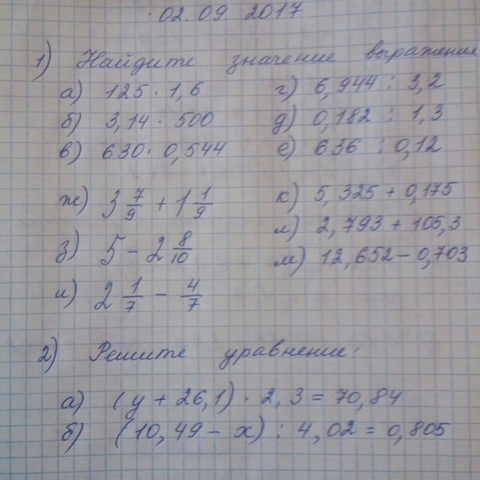 02.09.2017
1) Найдите значение выражения
а) 125 · 1,6 г) 6,944 : 3,2
б) 3,14 · 500 д) 0,182 : 1,3
в) 630 · 0,544 е) 636 : 0,12
ж) 3 7/9 + 1 1/9 к) 5,325 + 0,175
з) 5 - 2 8/10 л) 2,793 + 105,3
и) 2 1/7 - 4/7 м) 12,652 - 0,703
2) Решите уравнение:
а) (y + 26,1) · 2,3 = 70,84
б) (10,49 - x) : 4,02 = 0,805